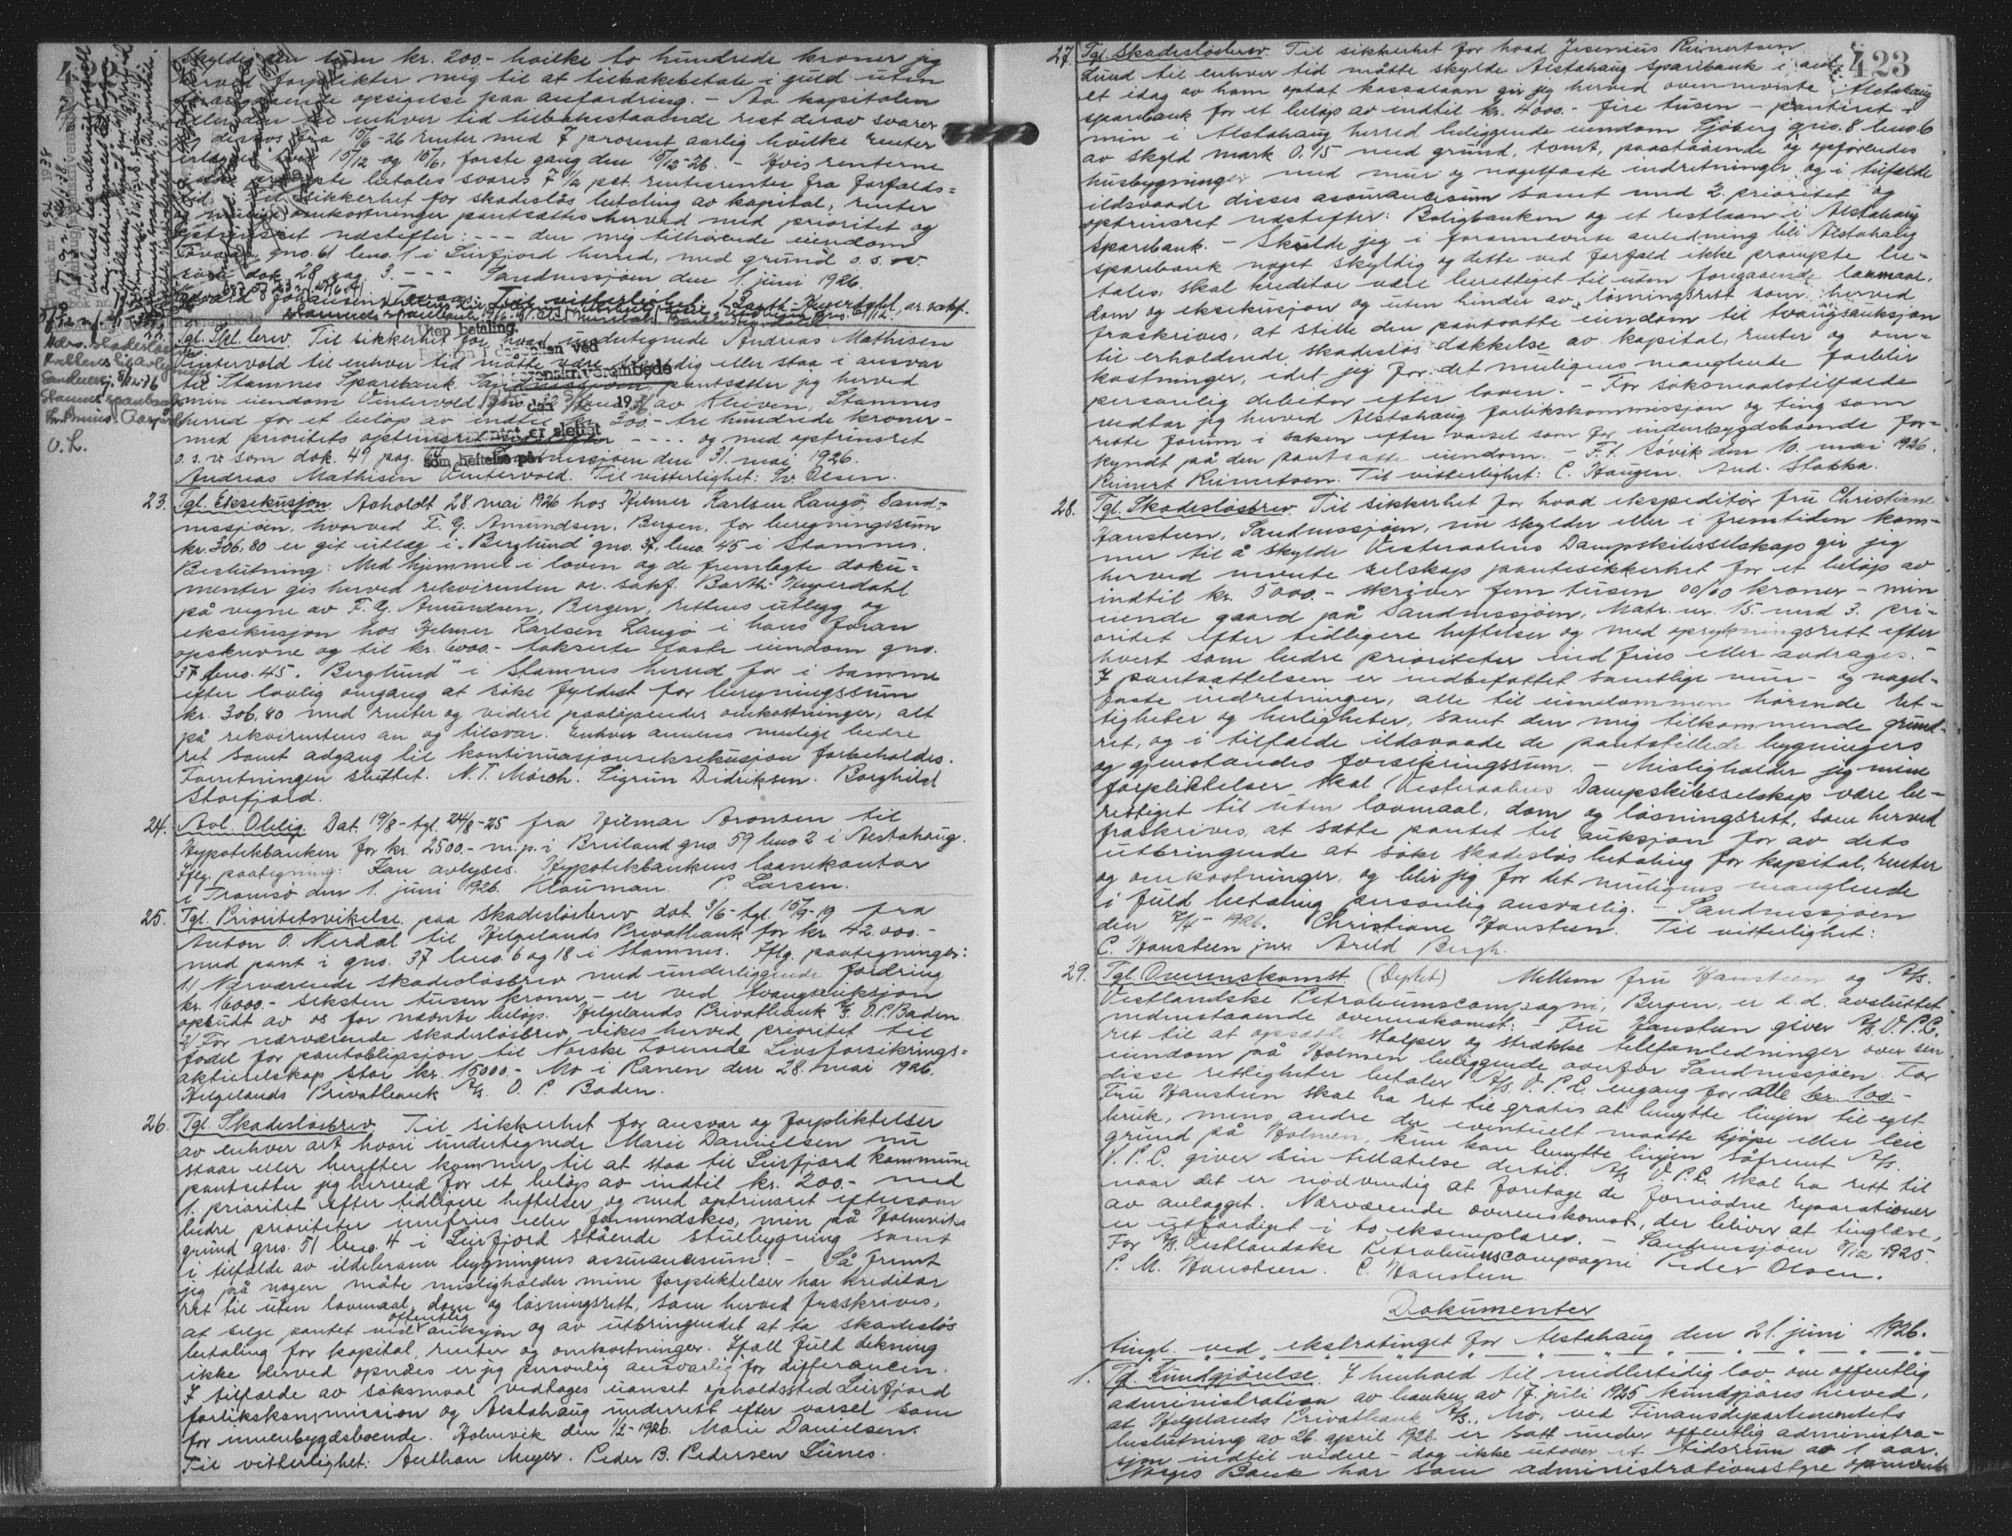 skyldig den sum kr. 200.- hvilke to hundrede kroner jeg
herved forplikter mig til at tilbakebetale i guld uten
foregaaende opsigelse paa anfordring. - Av kapitalen
eller den til enhver tid tilbakestaaende rest derav svarer
jeg dessuten fra 15/6-26 renter med 7 procent aarlig hvilke renter
erlægges hver 15/12 og 15/6, første gang den 15/12-26. - Hvis renterne
ikke betales svares 7 1/2 pct. rentesrenter fra forfalds=
tid. Til sikkerhet for skadesløs betaling av kapital, renter
og mulige omkostninger pantsættes herved med prioritet og
optrinsret næstefter: - - - den mig tilhørende eiendom
gno. 61 bno. 1 i Leirfjord herred, med grund o.s.v.
som dok. 28 pag. 3. - - - Sandnessjøen den 1 juni 1926.
Edvard Johansen. Til vitterlighet: Barth-Heyerdahl, or. sakf.
Tgl. Skl. brev. Til sikkerhet for hvad undertegnede Andreas Mathisen
Vintervold til enhver tid måtte være skyldig eller staa i ansvar
til Stamnes Sparebank Sandnessjøen pantsetter jeg herved
min eiendom Vintervold, gno. 22 bno. av Kleiven, Stamnes
herred for et beløp av indtil kr. 300.- tre hundrede kroner-
med prioritets optrinsret - - - og med optrinsret
o.s.v. som dok. 49 pag. Sandnessjøen den 31. mai 1926.
Andreas Mathisen Vintervold. Til vitterlighet: W. Olsen.
23. Tgl. Eksekusjon Avholdt 28. mai 1926 hos Hilmer Karlsen Langø, Sand=
nessjøen, hvorved F. G. Amundsen, Bergen, for beregningssum
kr. 306,80 er git utlæg i "Berglund" gno. 37, bno. 45 i Stamnes.
Beslutning: Med hjemmel i loven og de fremlagte doku=
menter gis herved rekvirenten or. sakf. Barth-Heyerdahl
på vegne av F. G. Amundsen, Bergen, rettens utlegg og
eksekusjon hos Hilmer Karlsen Langø i hans foran
opskrevne og til kr. 6000.- takserte faste eiendom gno.
37 bno. 45. "Berglund" i Stamnes herred for i samme
efter lovlig omgang at søke fyldest for beregningssum
kr. 306,80 med renter og videre paaløpende omkostninger, alt
på rekvirentens an og tilsvar. Enhver annens mulige bedre
ret samt adgang til kontinuasjonseksekusjon forbeholdes.
Forretningen sluttet. N. T. Mörch. Sigrun Didriksen. Borghild
Storfjord.
24. Avl. Oblig. Dat. 19/8 - tgl. 24/8-25 fra Hilmar Aronsen til
Hypotekbanken for kr. 2500.- m.p. i Breiland gno. 59 bno 2 i Alstahaug.
Iflg. paategning: Kan avlyses. Hypotekbankens laanekontor
i Tromsø den 1. juni 1926. Klouman. P. Larsen.
25. Tgl. Prioritetsvikelse paa skadesløsbrev dat. 3/6- tgl. 15/9-19 fra
Anton O. Nerdal til Helgelands Privatbank for kr 42.000.-
med pant i gno. 37 bno. 6 og 18 i Stamnes. Iflg. paategninger:
1) Nærværende skadesløsbrev med underliggende fordring
kr. 16000.- seksten tusen kroner - er ved tvangsauksjon
opbudt av os for nævnte beløp. Helgelands Privatbank A/S. O. P. Baden.
2) For nærværende skadesløsbrev vikes herved prioritet til
fordel for pantobligasjon til Norske Forenede Livsforsikrings=
aktieselskap stor kr. 15000.- Mo i Ranen den 28. mai 1926.
Helgelands Privatbank A/S. O. P. Baden.
26. Tgl. Skadesløsbrev Til sikkerhet for ansvar og forpliktelser
av enhver art hvori undertegnede Marie Danielsen nu
staar eller herefter kommer til at staa til Leirfjord kommune
pantsetter jeg herved for et beløp av indtil kr. 200.- med
1. prioritet efter tidligere heftelser og med optrinsret eftersom
bedre prioriteter innfries eller formindskes, min på Holmviks
grund gno. 51 bno. 4 i Leirfjord stående stuebygning samt
i tilfælde av ildebrann bygningens assuransesum. - Så fremt
jeg på nogen måte misligholder mine forpliktelser har kreditor
ret til uten lovmaal, dom og løsningsrett, som herved fraskrives,
at selge pantet ved offentlig auksjon og av utbringendet at ta skadesløs
betaling for kapital, renter og omkostninger. Ifall fuld dekning
ikke derved opnåes er jeg personlig ansvarlig for differancen.
I tilfælde av søksmaal vedtages uanset opholdssted Leirfjord
forlikskommission og Alstahaug underrett efter varsel som
for innenbygdsboende. Holmvik den 1/2-1926. Marie Danielsen.
Til vitterlighet: Anthon Meyer. Peder B. Pedersen Lines.
423
27. Tgl. Skadesløsbrev. Til sikkerhet for hvad Jesenius Reinertsen
Lund til enhver tid måtte skylde Alstahaug sparebank i anl.
et idag av ham optat kassalaan gir jeg herved ovennævnte Alstahaug
sparebank for et beløp av indtil kr. 4000.- fire tusen - panteret i
min i Alstahaug herred beliggende eiendom Sjøberg gno. 8 bno. 6
av skyld mark 0.15 med grund, tomt, paastaaende og opførendes
husbygninger med mur og nagelfaste indretninger og i tilfælde
ildsvaade disses assurancesum samt med 2. prioritet og
optrinsret næstefter: Boligbanken og et restlaan i Alstahaug
sparebank. - Skulde jeg i forannævnte anledning bli Alstahaug
sparebank noget skyldig og dette ved forfald ikke prompte be-
tales, skal kreditor være berettiget til uten foregaaende lovmaal,
dom og eksekusjon og uten hinder av løsningsrett som herved
fraskrives, at stille den pantsatte eiendom til tvangsauksjon
til erholdende skadesløs dækkelse av kapital, renter og om-
kostninger, idet jeg for det muligens manglende forblir
personlig debitor efter loven. - For søksmaalstilfælde
vedtar jeg herved Alstahaug forlikskommissjon og ting som
rette forum i saken efter varsel som for innenbygdsboende for-
kyndt på den pantsatte eiendom. - F. t. Søvik den 10. mai 1926.
Reinert Reinertsen. Til vitterlighet: C. Haugen. And. Stokka.
28. Tgl. Skadesløsbrev. Til sikkerhet for hvad ekspeditør fru Christiane
Hansteen, Sandnessjøen, nu skylder eller i fremtiden kom-
mer til å skylde Vesteraalens Dampskibsselskap gir jeg
herved nævnte selskap pantesikkerhet for et beløp av
indtil kr. 5000.- skriver fem tusen 00/00 kroner - i min
eiende gaard på Sandnessjøen, Matr. nr. 15. med 3. pri-
oritet efter tidligere heftelser og med oprykningsrett efter
hvert som bedre prioriteter indfries eller avdrages. -
I pantsættelsen er indbefattet samtlige mur- og nagel-
faste indretninger, alle til eiendommen hørende ret-
tigheter og herligheter, samt den mig tilkommende grund-
ret, og i tilfælde ildsvaade de pantstillede bygningers
og gjenstandes forsikringssum. - Misligholder jeg mine
forpliktelser skal Vesteraalens Dampskibsselskap være be-
rettiget til uten lovmaal, dom og løsningsrett, som herved
fraskrives, at sætte pantet til auksjon for av dets
utbringende at søke skadesløs betaling for kapital, renter
og omkostninger, og blir jeg for det muligens manglende
i fuld betaling personlig ansvarlig. - Sandnessjøen
den 7/4-1926. Christiane Hansteen. Til vitterlighet:
C. Hansteen jnr. Arild Bergh.
29. Tgl. Overenskomst (Duplet) Mellem fru Hansteen og A/S.
Vestlandske Petroleumscompagni, Bergen, er d.d. avsluttet
nedenstaaende overenskomst: - Fru Hansteen giver A/S. V.P.C.
ret til at opsætte stolper og strække telefonledninger over sin
eiendom på Holmen beliggende overfor Sandnessjøen. For
disse rettigheter betaler A/S. V.P.C. engang for alle kr. 100.-
Fru Hansteen skal ha ret til gratis at benytte linjen til eget
bruk, mens andre der eventuelt maatte kjøpe eller leie
grund på Holmen, kun kan benytte linjen såfremt A/S.
V.P.C. giver sin tillatelse dertil. A/S V.P.C. skal ha rett til
naar det er nødvendig at foretage de fornødne reparationer
av anlægget. Nærværende overenskomst, der bliver at tinglæse,
er utfærdiget i to eksemplarer. - Sandnessjøen 7/12 1925.
For A/S. Vestlandske Petroleumscompagni Peder Olsen.
P. M. Hansteen. C. Hansteen.
Dokumenter
tingl. ved ekstratinget for Alstahaug den 21. juni 1926.
1. Tgl. Kundgjørelse. I henhold til midlertidig lov om offentlig
administration av banker av 17. juli 1925 kundgjøres herved,
at Helgelands Privatbank A/S., Mo, ved Finansdepartementets
beslutning av 26. april 1926 er satt under offentlig administra-
sjon indtil videre - dog ikke utover et tidsrum av 1 aar.
Norges Bank har som administrationsstyre opnævnt